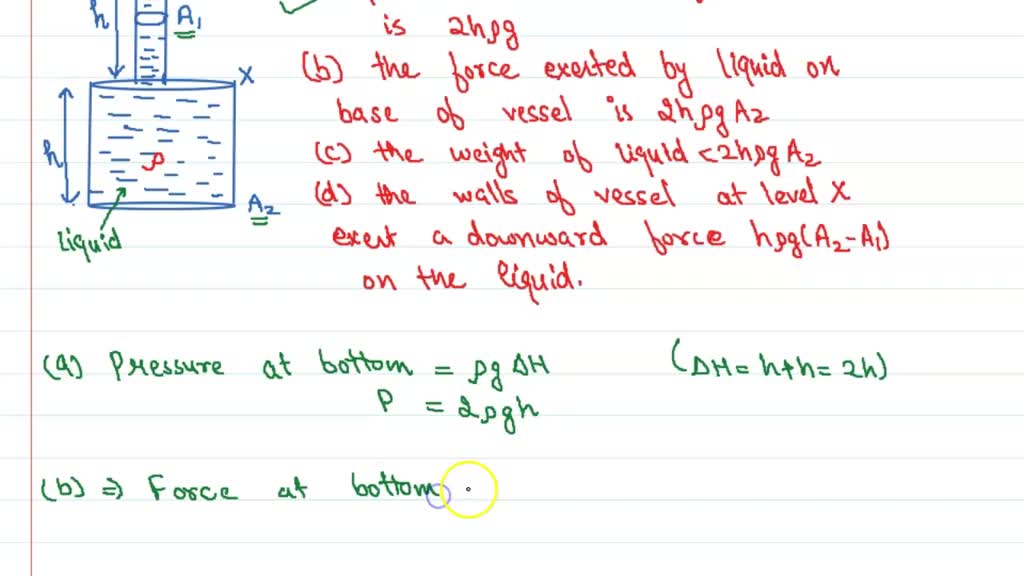 h
A₁
is 2hρg
X
(b) the force exerted by liquid on
base of vessel is 2hρg A₂
h
ρ
(c) the weight of liquid < 2hρg A₂
(d) the walls of vessel at level X
A₂
liquid
exert a downward force hρg(A₂-A₁)
on the liquid.
(a) Pressure at bottom = ρg ΔH (ΔH = h+h = 2h)
P = 2ρgh
(b) ⇒ Force at bottom